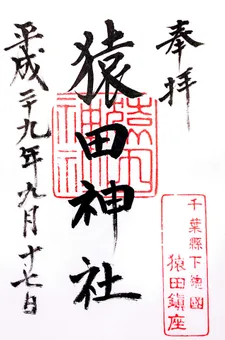 奉拝
猿田神社
猿田神社
平成二十九年九月十七日
千葉縣下總國
猿田鎮座